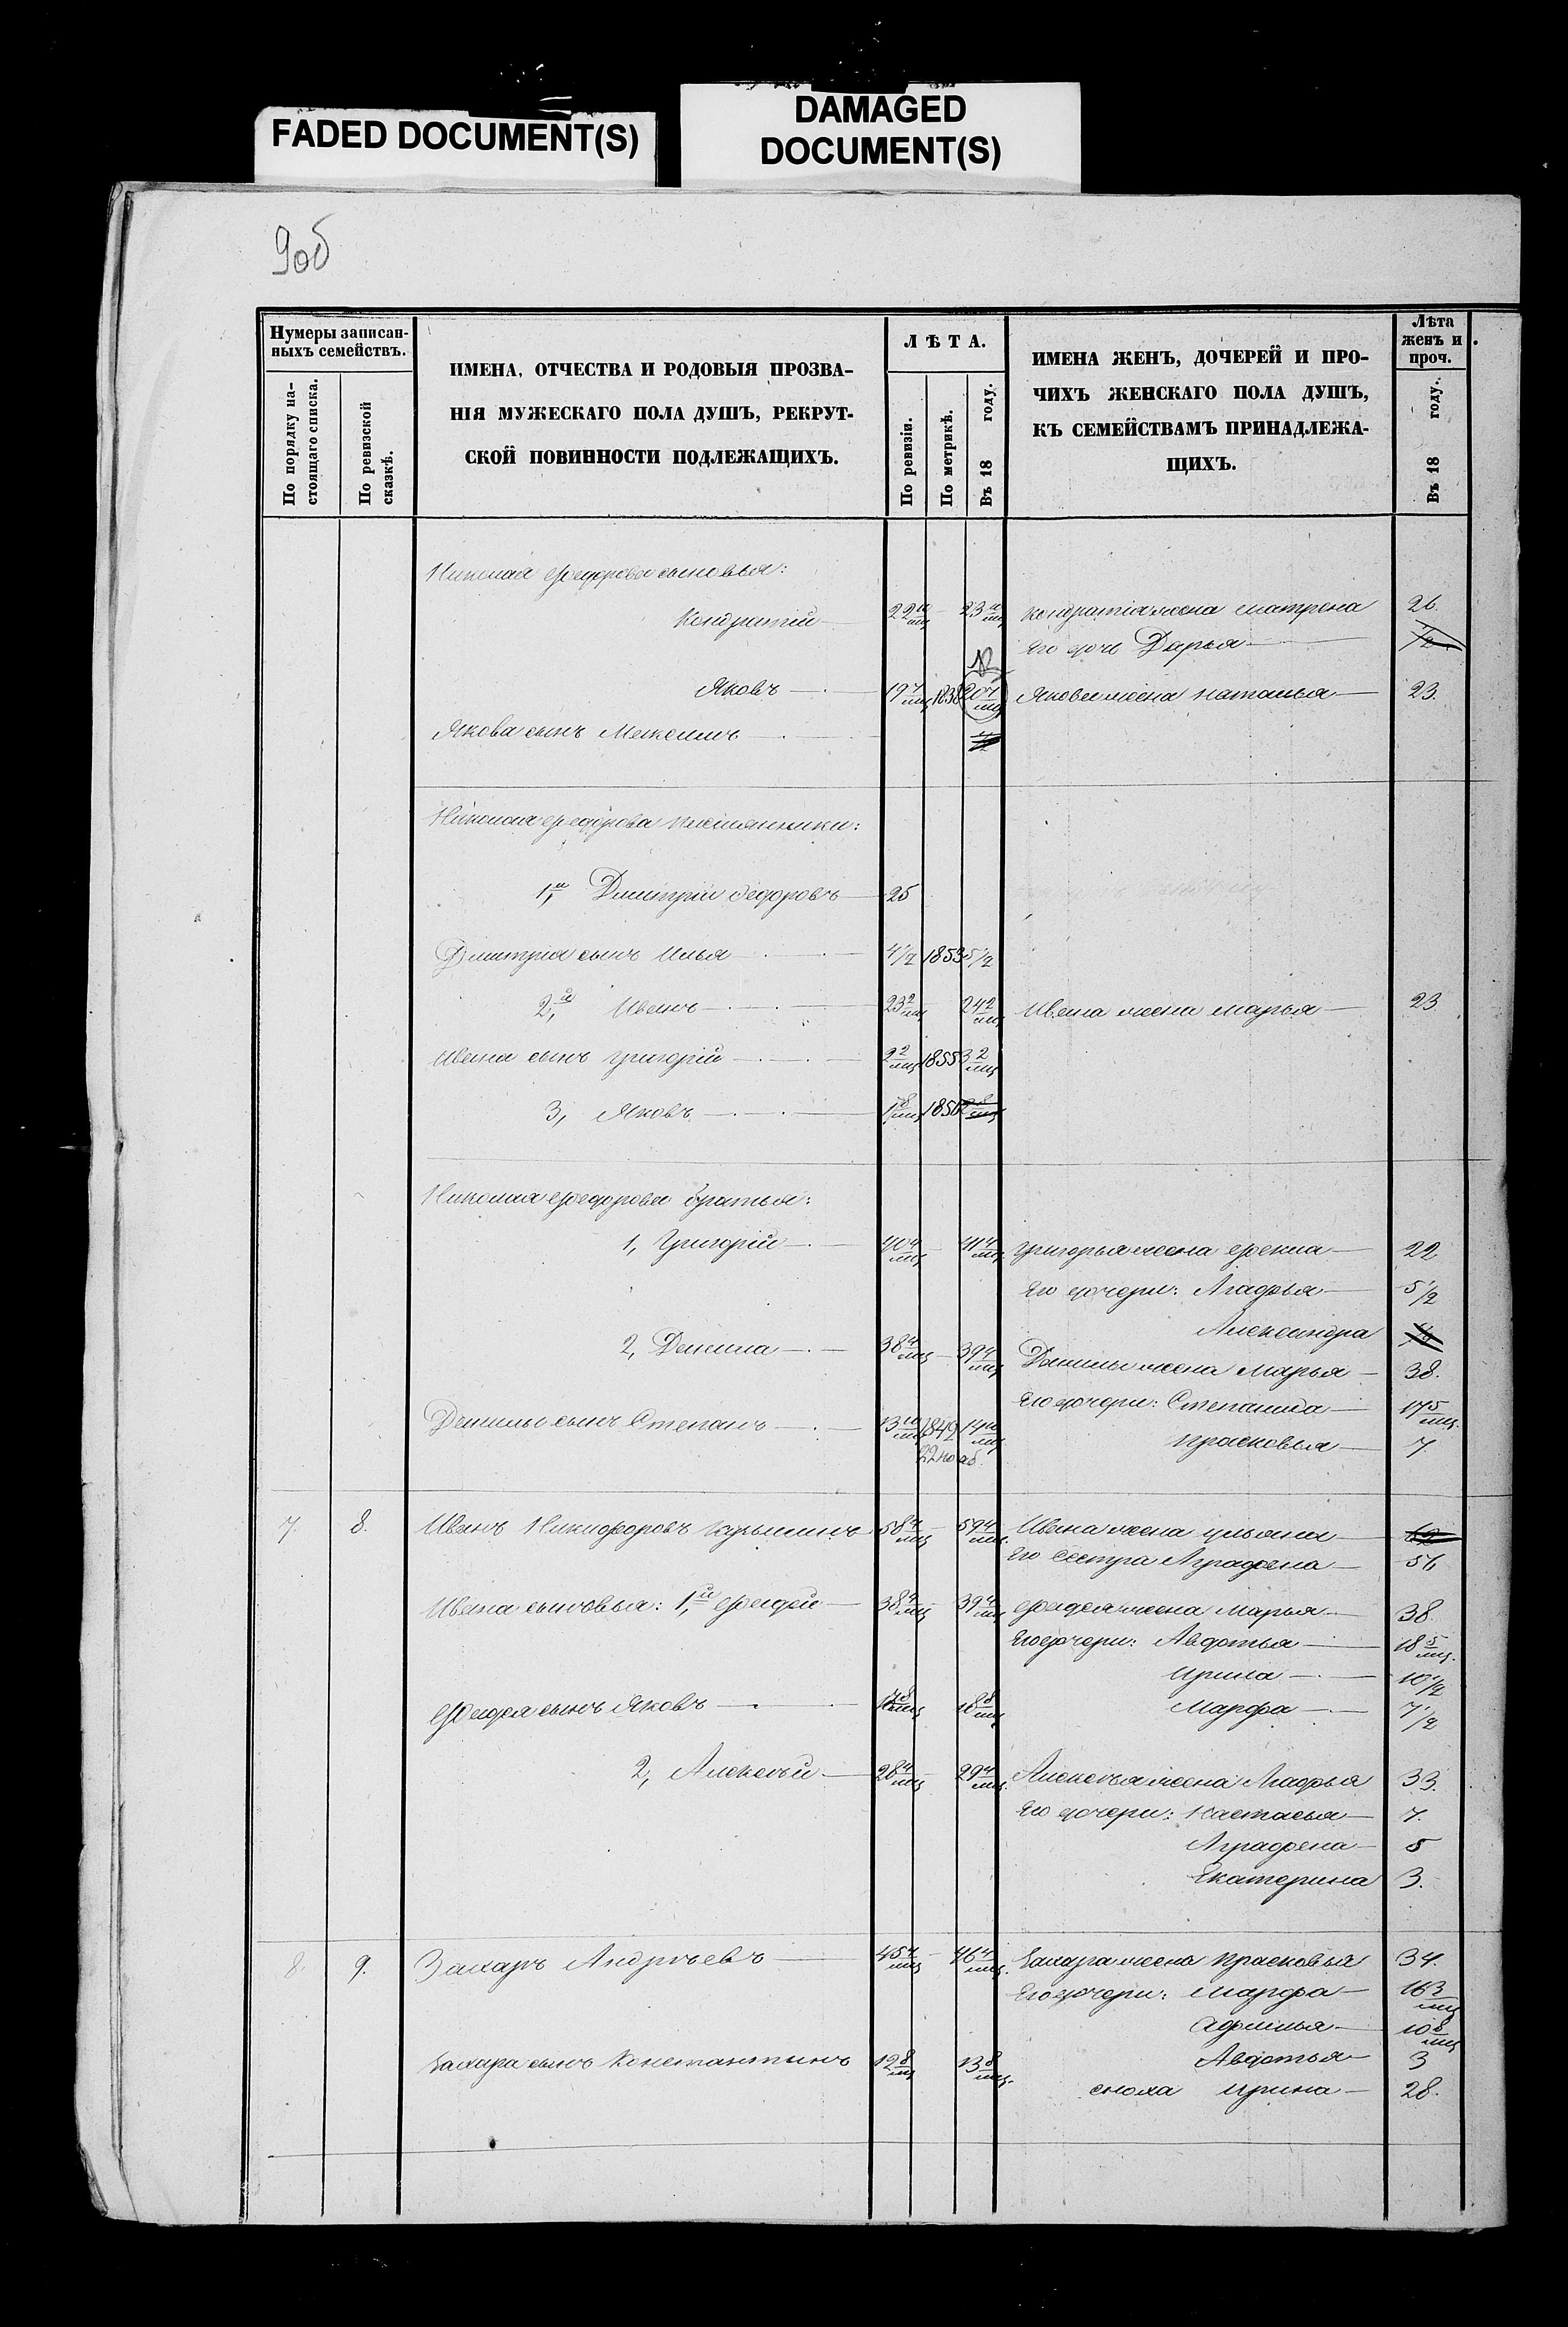 FADED DOCUMENT(S)
DAMAGED
DOCUMENT(S)
9об
Нумеры записан-
ныхъ семействъ.
По порядку на-
стоящаго списка.
По ревизской
сказкѣ.
ИМЕНА, ОТЧЕСТВА И РОДОВЫЯ ПРОЗВА-
НІЯ МУЖЕСКАГО ПОЛА ДУШЪ, РЕКРУТ-
СКОЙ ПОВИННОСТИ ПОДЛЕЖАЩИХЪ.
ЛѢТА.
По ревизіи.
По метрикѣ.
Въ 18 году.
ИМЕНА ЖЕНЪ, ДОЧЕРЕЙ И ПРО-
ЧИХЪ ЖЕНСКАГО ПОЛА ДУШЪ,
КЪ СЕМЕЙСТВАМЪ ПРИНАДЛЕЖА-
ЩИХЪ.
Лѣта
женъ и
проч.
Въ 18 году.
Николая Федорова сыновья:
Кондратій 22 23 Кондратія жена Матрена 26.
Его дочь Дарья
Яковъ 19 4/мц 1838 20 4/мц Якова жена Наталья 23.
Якова сынъ Максимъ
Николая Федорова племянники:
1,й Дмитрій Федоровъ 25
Дмитрія сынъ Илья 4 1/2 1853 5 1/2
2,й Иванъ 23 2/мц 24 2/мц Ивана жена Марья 23
Ивана сынъ Григорій 2 2/мц 1855 3 2/мц
3, Яковъ 1 8/мц 1856 2 8/мц
Николая Федорова братья:
1, Григорій 40 4/мц 41 4/мц Григорья жена Фекла 22
Его дочери: Агафья 5 1/2
Александра
2, Данила 38 4/мц 39 4/мц Данилы жена Марья 38.
Его дочери: Степанида 17 5/мц.
Данилы сынъ Степанъ 13 1849 14 Прасковья 7.
22 нояб.
7. 8. Иванъ Никифоровъ 58 4/мц 59 4/мц. Ивана жена Ульяна
Его сестра Аграфена 56
Ивана сыновья: 1,й Фадей 38 4/мц 39 4/мц Фадея жена Марья 38.
Его дочери: Авдотья 18 5/мц.
Ирина 10 1/2
Фадея сынъ Яковъ 8/мц Марфа 7 1/2
2, Алексѣй 28 4/мц 29 4/мц. Алексѣя жена Агафья 33.
Его дочери: Настасья 7.
Аграфена 5
Екатерина 3.
8. 9. Захаръ Андрѣевъ 45 4/мц 46 4/мц. Захара жена Прасковья 34.
Его дочери: Марфа 16 3/мц
Афимья 10 8/мц
Захара сынъ Константинъ 12 8/мц 13 8/мц. Авдотья 3
сноха Ирина 28.